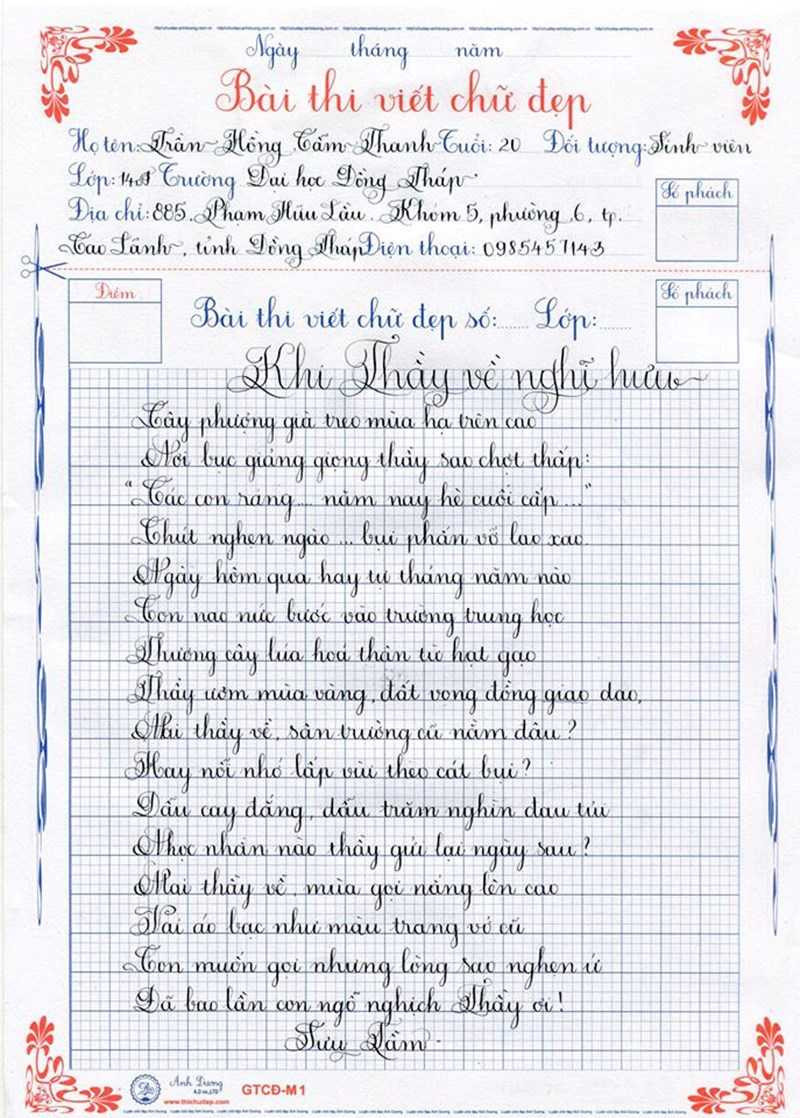 Ngày tháng năm
Bài thi viết chữ đẹp
Họ tên: Trần Hồng Cẩm Thanh Tuổi: 20 Đối tượng: Sinh viên
Lớp: Trường Đại học Đồng Tháp
Số phách
Địa chỉ: 885. Phạm Hữu Lầu. Khóm 5, phường 6, tp.
Cao Lãnh, tỉnh Đồng Tháp Điện thoại: 0985457143
Điểm
Số phách
Bài thi viết chữ đẹp số:....... Lớp:.......
Khi Thầy về nghĩ hưu
Cây phượng già treo mùa hạ trên cao
Nơi bục giảng giọng thầy sao chợt thấp:
"Các con ráng.... năm nay hè cuối cấp ..."
Chút nghẹn ngào ... bụi phấn vỡ lao xao.
Ngày hôm qua hay tự tháng năm nào
Con nao nức bước vào trường trung học
Thương cây lúa hoá thân từ hạt gạo
Thầy ươm mùa vàng, đất vọng đồng giao dao,
thầy về, sân trường cũ nằm đâu?
Hay nỗi nhớ lấp vùi theo cát bụi?
Dấu cay đắng, dấu trăm nghìn đau tủi
Nhọc nhằn nào thầy gửi lại ngày sau?
Mai thầy về, mùa gọi nắng lên cao
Vai áo bạc như màu trang vở cũ
Con muốn gọi nhưng lòng sao nghẹn ứ
Đã bao lần con ngỗ nghịch Thầy ơi!
Lưu Lầm
Anh Dương
www.thichudep.com
GTCĐ-M1